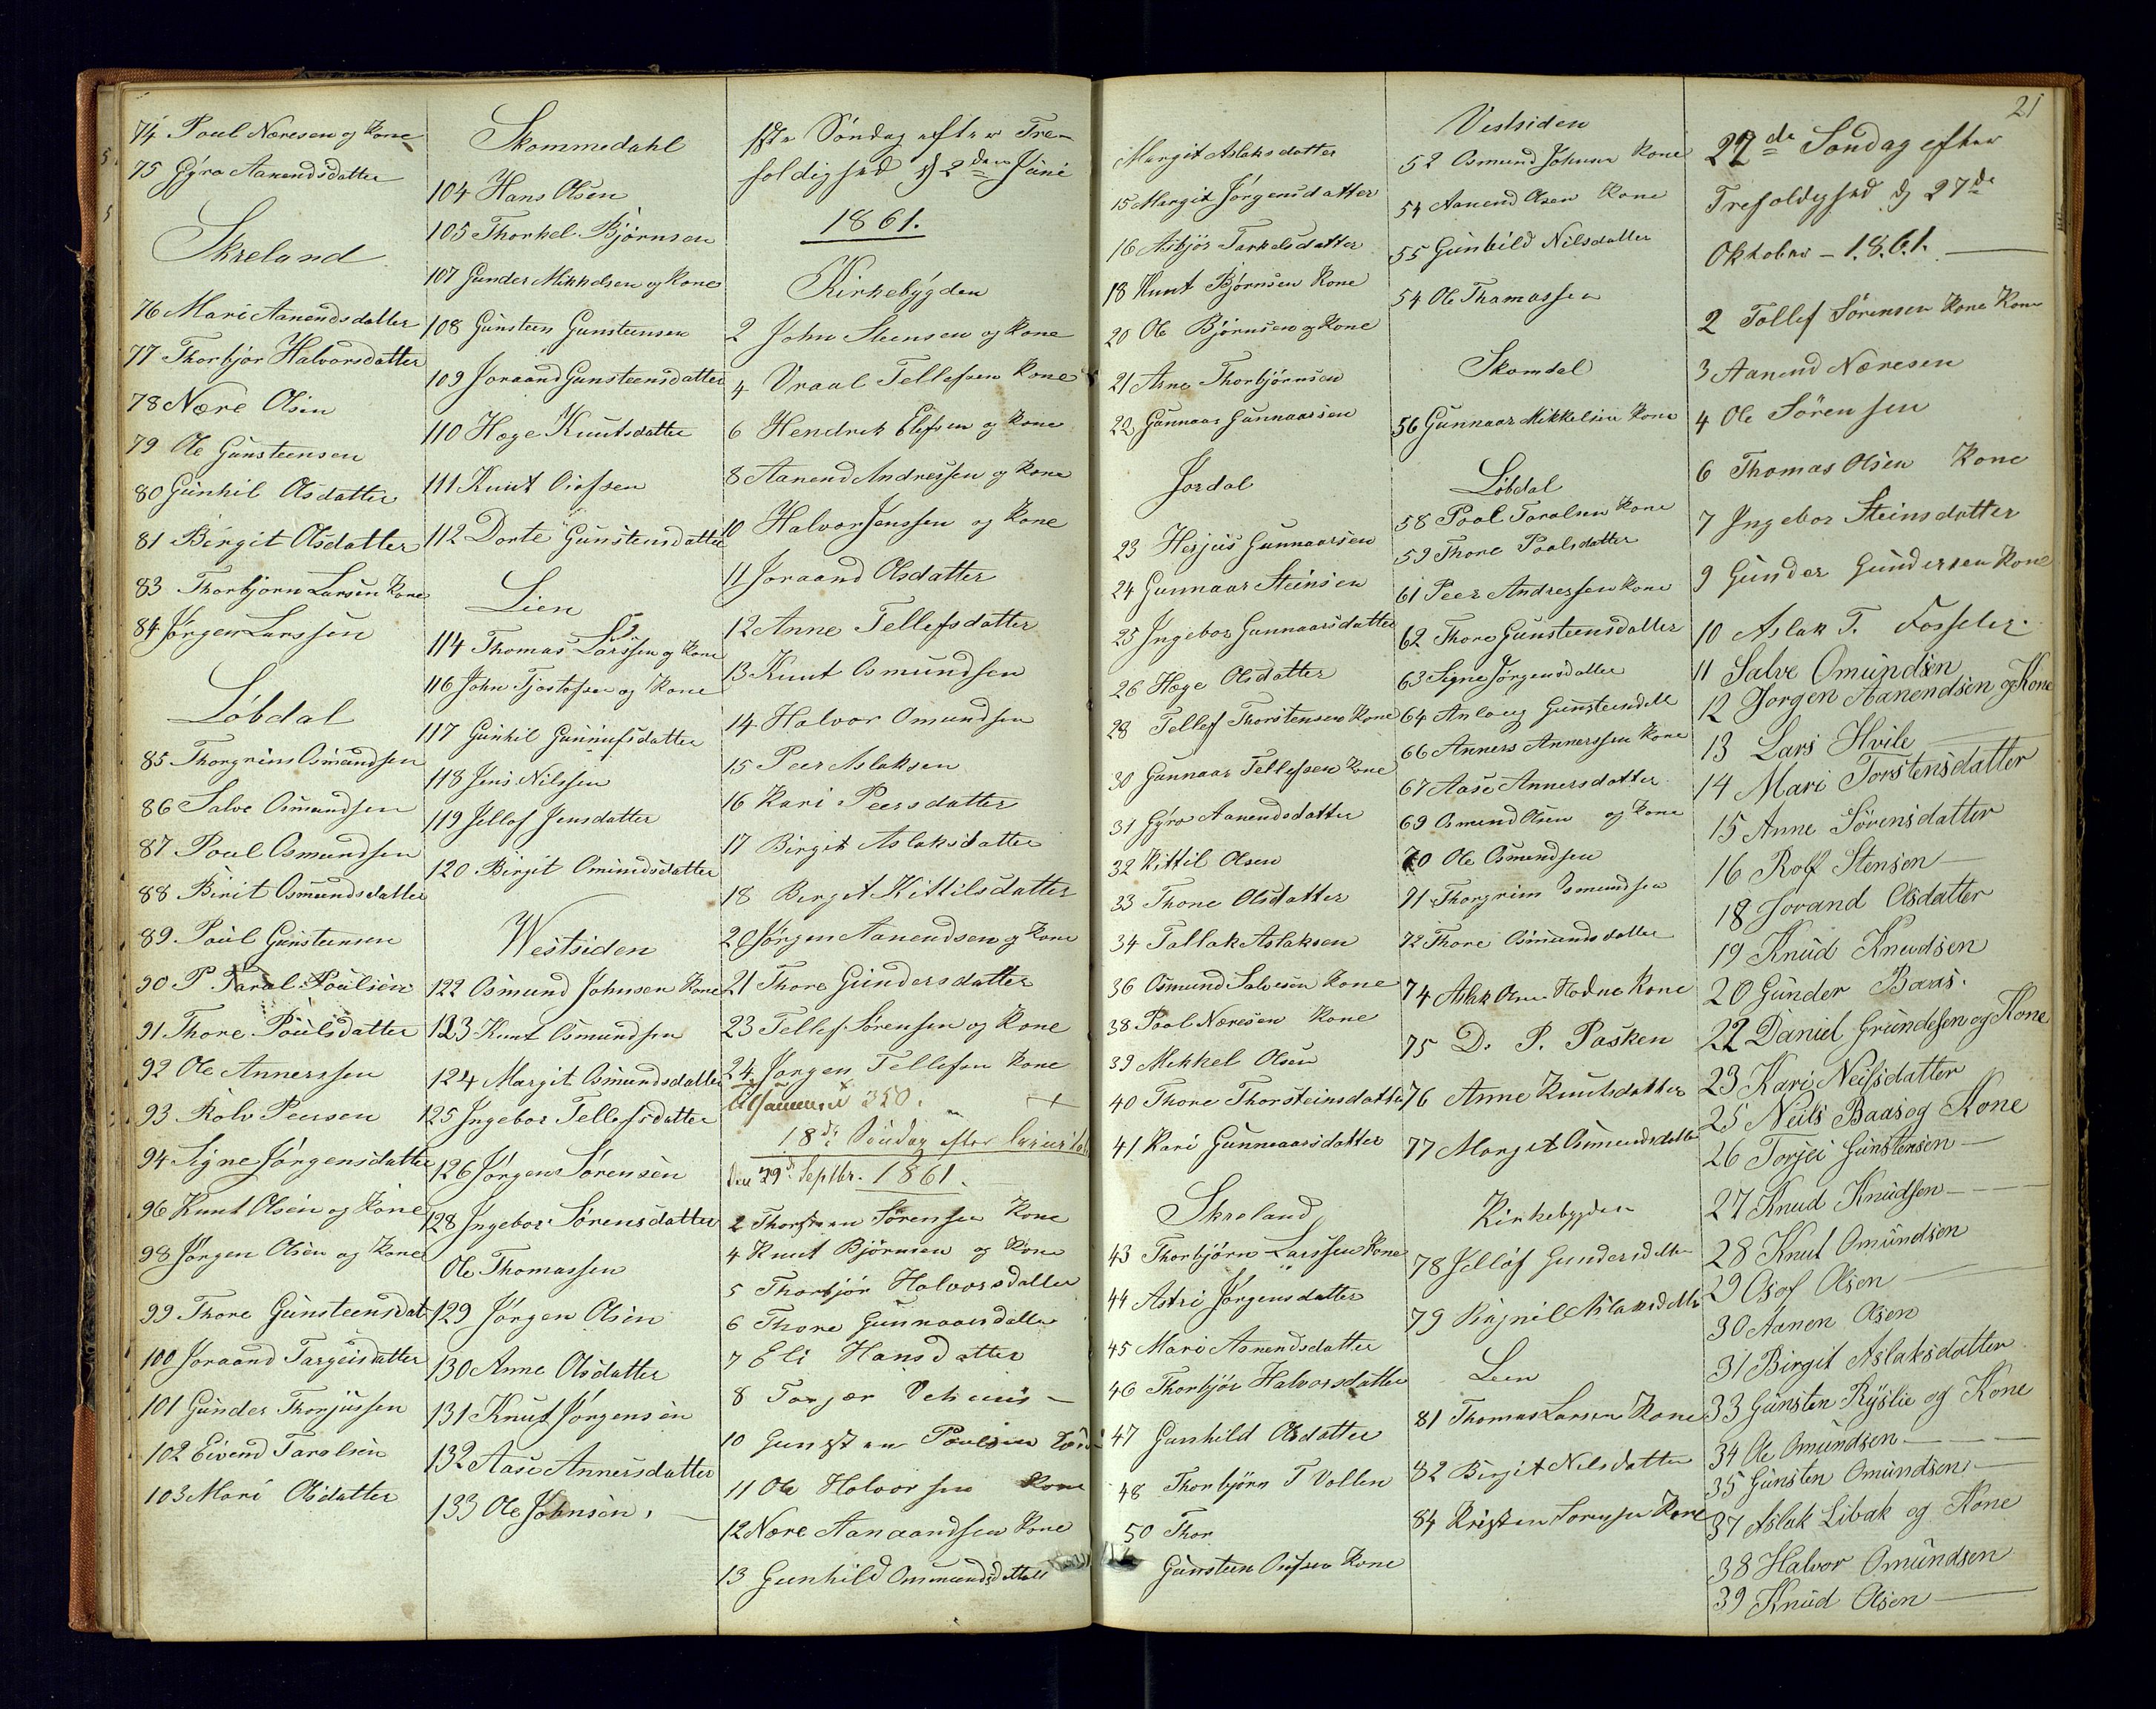 74 Poul Næresen og Kone
75 Gÿro Aanendsdatter
Skreland
76 Mari Aanendsdatter
77 Thorbjør Halvorsdatter
78 Nære Olsen
79 Ole Gunsteensen
80 Gunhil Olsdatter
81 Birgit Olsdatter
83 Thorbjørn Larsen Kone
84 Jørgen Larssen
Løbdal
85 Thorgrim Osmundsen
86 Salve Osmundsen
87 Poul Osmundsen
88 Birit Osmundsdatter
89 Poul Gunsteensen
90 P Taral Poulsen
91 Thore Poulsdatter
92 Ole Annerssen
93 Rolv Peersen
94 Signe Jørgensdatter
96 Knut Olsen og Kone
98 Jørgen Olsen og Kone
99 Thore Gunsteensdat
100 Joraand Targeisdatter
101 Gunder Thorjussen
102 Eivend Taralsen
103 Mari Olsdatter
Skommedahl
104 Hans Olsen
105 Thorkel Bjørnsen
107 Gunder Mikkelsen og Kone
108 Gunsteen Gunsteensen
109 Joraand Gunsteensdatter
110 Hæge Knutsdatter
111 Knut Oiofsen
112 Dorte Gunstensdatter
Lien
114 Thomas Larssen og Kone
116 John Tjostofsen og Kone
117 Gunhil Gunnufsdatter
118 Jens Nilssen
119 Jellof Jensdatter
120 Birgit Omundsdatter
Westsiden
122 Osmund Johnsen Kone
123 Knut Osmundsen
124 Margit Osmundsdatter
125 Ingebor Tellefsdatter
126 Jørgen Sørensen
128 Ingebor Sørensdatter
Ole Thomassen
129 Jørgen Olsen
130 Anne Olsdatter
131 Knut Jørgensen
132 Aase Annersdatter
133 Ole Johnsen.
1ste Søndag efter Tre-
foldighed d 2den Juni
1861.
Kirkebÿgden
2 John Steensen og Kone
4 Vraal Tellefsen Kone
6 Hendrik Elefsen og Kone
8 Aanend Andressen og Kone
10 Halvor Jenssen og Kone
11 Joraand Olsdatter
12 Anne Tellefsdatter
13 Knut Osmundsen
14 Halvor Omundsen
15 Peer Aslaksen
16 Kari Peersdatter
17 Birgit Aslaksdatter
18 Berget Kittilsdatter
20 Jørgen Aanendsen og Kone
21 Thore Gundersdatter
23 Tellef Sørensen og Kone
24 Jørgen Tellefsen Kone
Tilsammen 350.
18de Søndag efter
den 29de Septbr. 1861.
2 Thorsteen Sørensen Kone
4 Knut Bjørnsen og Kone
5 Thorbjør Halvorsdatter
6 Thore Gunnaarsdatter
7 Eli Hansdatter
8 Torjer
10 Gunsten Poulsen
11 Ole Halvorsen Kone
12 Nære Aanaandsen Kone
13 Gunhild Ommundsdatter
Margit Aslaksdatter
15 Margit Jørgensdatter
16 Asbjør Tarkelsdatter
18 Knut Bjørnsen Kone
20 Ole Bjørnsen og Kone
21 Arne Thorbjørnsen
22 Gunnaar Gunnaarsen
Jordal
23 Herjus Gunnaarsen
24 Gunnaar Steinsen
25 Ingebor Gunnaarsdatter
26 Hæge Olsdatter
28 Tellef Thorstensen Kone
30 Gunnaar Tellefsen Kone
31 Gÿro Aanendsdatter
32 Kittil Olsen
33 Thone Olsdatter
34 Tallak Aslaksen
36 Osmund Salvesen Kone
38 Paal Næresen Kone
39 Mikkel Olsen
40 Thone Thorsteinsdatter
41 Kari Gunnaarsdatter
Skreland
43 Thorbjørn Larssen Kone
44 Astri Jørgensdatter
45 Mari Aanendsdatter
46 Thorbjør Halvorsdatter
47 Gunhild Olsdatter
48 Thorbjørn T Vollen
50 Thor
Gunsteen Oiofsen Kone
Vestsiden
52 Osmund Johnsen Kone
54 Aanend Olsen Kone
55 Gunhild Nilsdatter
54 Ole Thomassen
Skomdal
56 Gunnaar Mikkelsen Kone
Løbdal
58 Paal Taralsen Kone
59 Thore Paalsdatter
61 Peer Andressen Kone
62 Thore Gunsteensdatter
63 Signe Jørgensdatter
64 Anlaug Gunsteensdatt
66 Anners Annerssen Kone
67 Aase Annersdatter
69 Osmund Olsen og Kone
70 Ole Osmundsen
71 Thorgrim Osmundsen
72 Thore Osmundsdatter
74 Aslak Olsen Hodne Kone
75 D. P. Pasken
76 Anne Knutsdatter
77 Margit Osmundsdatter
Kirkebygden
78 Jelløf Gundersdatter
79 Ragnil Aslaksdatter
Leen
81 Thomas Larsen Kone
82 Birgit Nilsdatter
84 Kristen Sørensen Kone
21
22de Søndag efter
Trefoldighed d 27de
Oktober - 1.8.6.1.
2 Tollef Sørensen Kone Kone
3 Aanend Næresen
4 Ole Sørensen
6 Thomas Olsen Kone
7 Ingebor Steinsdatter
9 Gunder Gundersen Kone
10 Aslak T. Fosseli.
11 Salve Omundsen
12 Jorgen Aanendsen og Kone
13 Lars Hvile
14 Mari Torstensdatter
15 Anne Sörensdatter
16 Rolf Stensen
18 Jorand Olsdatter
19 Knud Knudsen
20 Gunder Baas.
22 Daniel Grundesen og Kone
23 Kari Neilsdatter
25 Neils Baas og Kone
26 Torjei Gunstensen
27 Knud Knudsen
28 Knut Omundsen
29 Osof Olsen
30 Aanen Olsen
31 Birgit Aslaksdatter
33 Gunsten Rÿslie og Kone
34 Ole Omundsen
35 Gunsten Omundsen
37 Aslak Libak og Kone
38 Halvor Omundsen
39 Knud Olsen